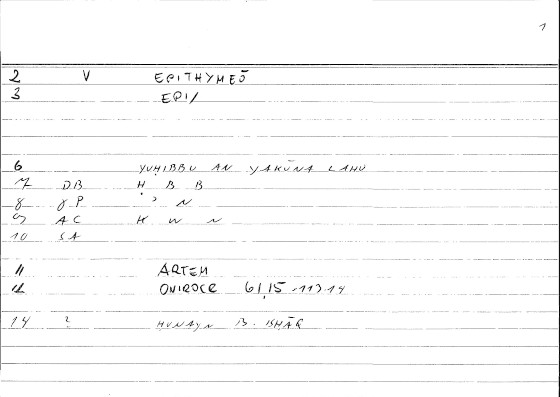 1
2 V EPITHYMEŌ
3 EPI/
6 YUḤIBBU AN YAKŪNA LAHU
7 DB Ḥ B B
8 8P ʾ N
9 AC K W N
10 SA
11 ARTEM
12 ONIROCR 61,15 113.14
14 ? ḤUNAYN B. ISḤĀQ